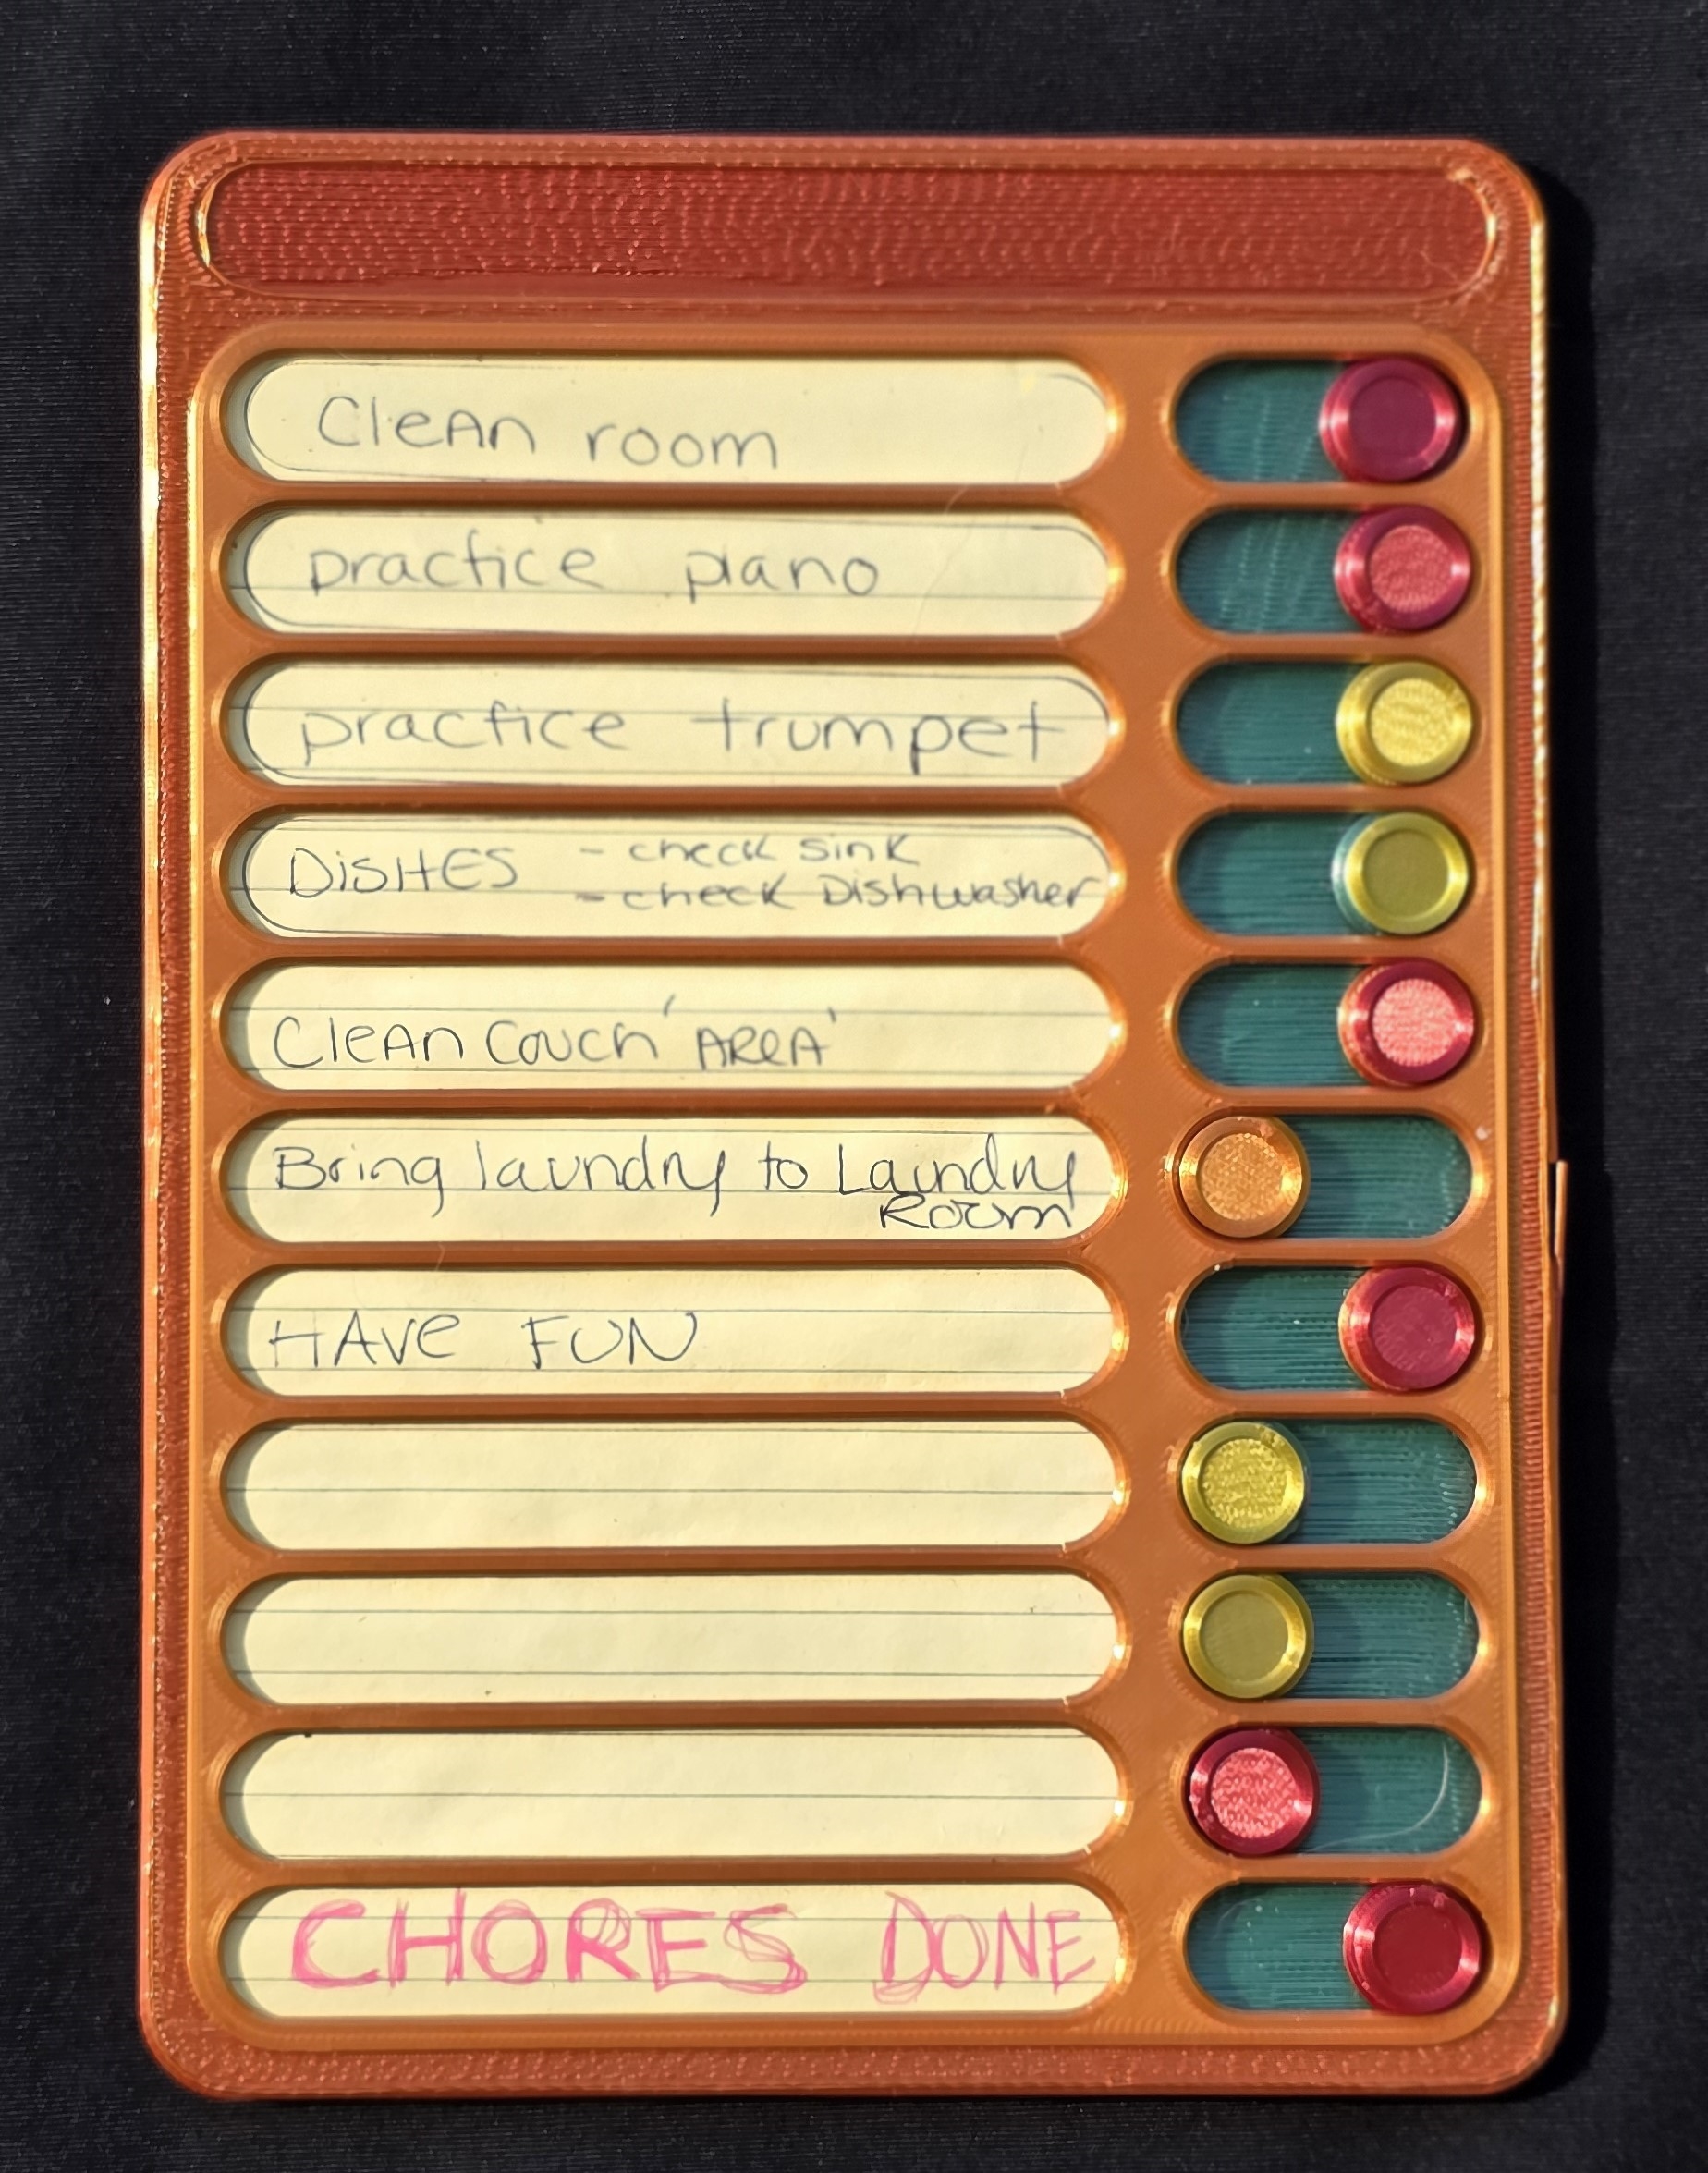 CleAn room
practice piano
practice trumpet
DiSHES - check sink
- check Dishwasher
CleAn Couch 'AReA'
Bring laundry to Laundry
Room
HAVe FUN
CHORES DONE